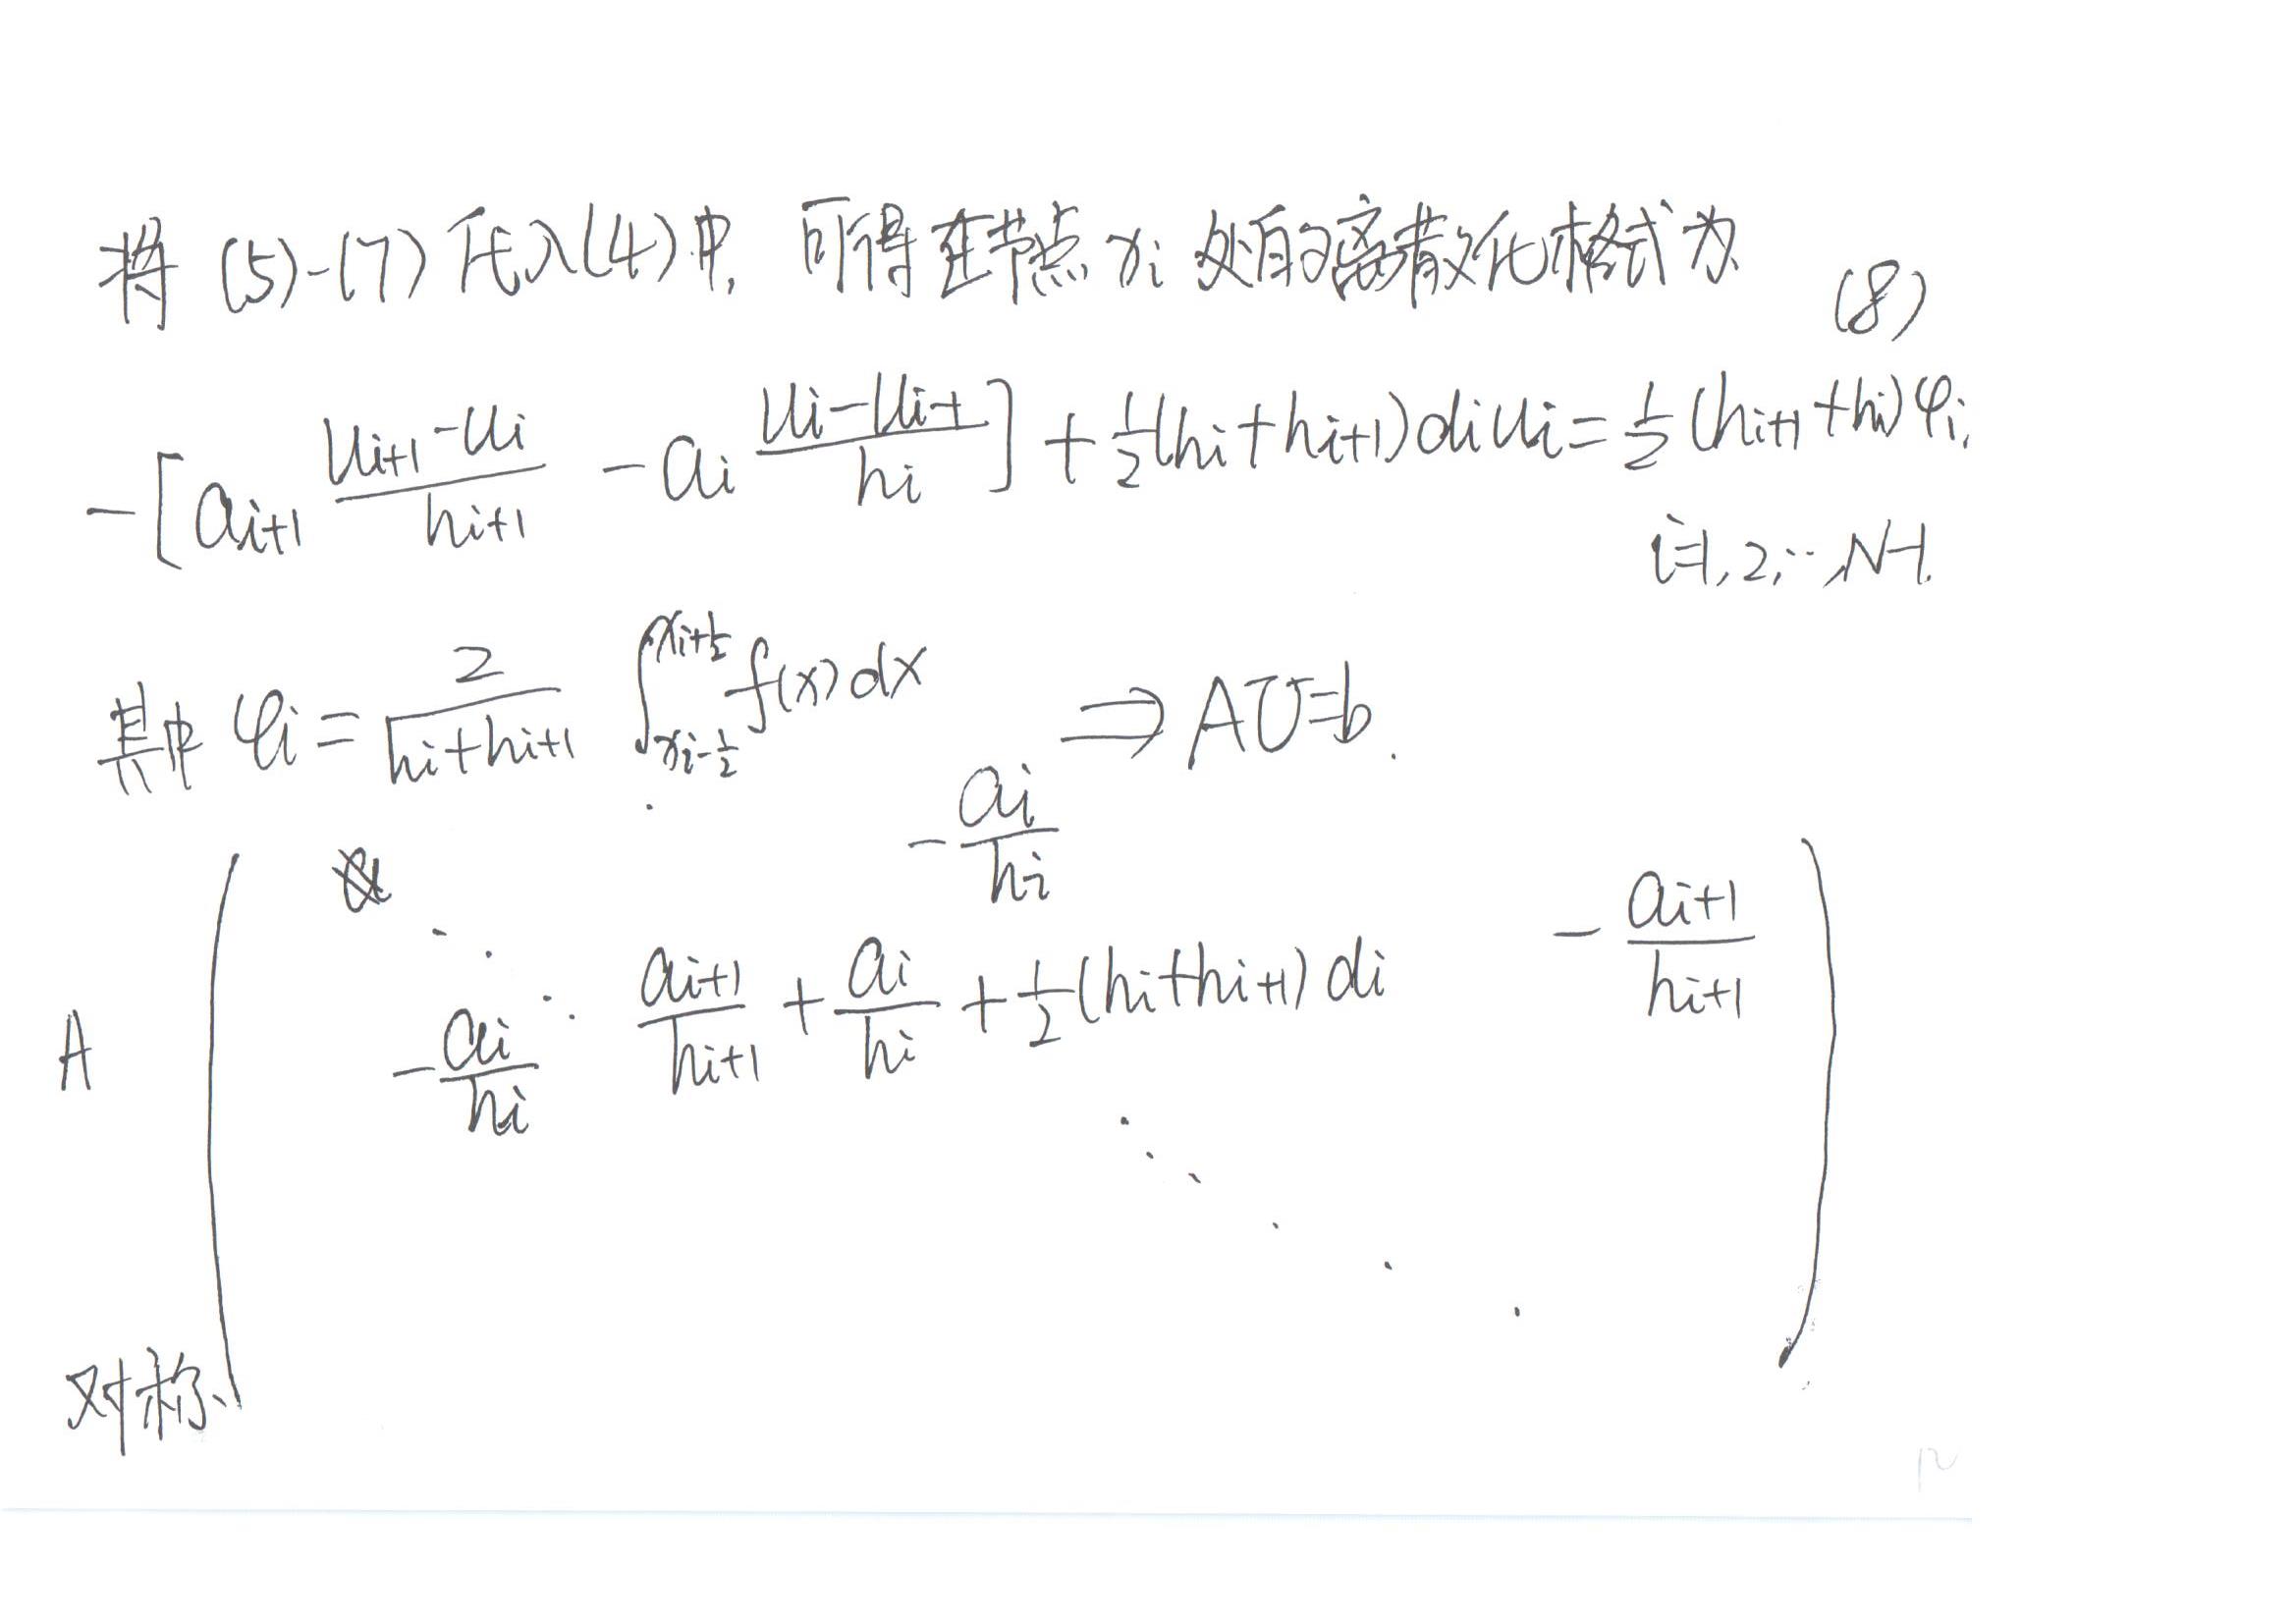 将 (5)-(7) 代入(4)中, 可得在节点 xᵢ 处的离散化格式为
(8)
-[aᵢ₊₁ (uᵢ₊₁-uᵢ)/hᵢ₊₁ - aᵢ (uᵢ-uᵢ₋₁)/hᵢ] + ½(hᵢ+hᵢ₊₁)dᵢuᵢ = ½(hᵢ₊₁+hᵢ)φᵢ,
i=1,2,…,N-1.
其中 φᵢ = 2/(hᵢ+hᵢ₊₁) ∫_{x_{i-½}}^{x_{i+½}} f(x)dx ⇒ AU=b.
-aᵢ/hᵢ
-aᵢ₊₁/hᵢ₊₁
A -aᵢ/hᵢ aᵢ₊₁/hᵢ₊₁ + aᵢ/hᵢ + ½(hᵢ+hᵢ₊₁)dᵢ
对称